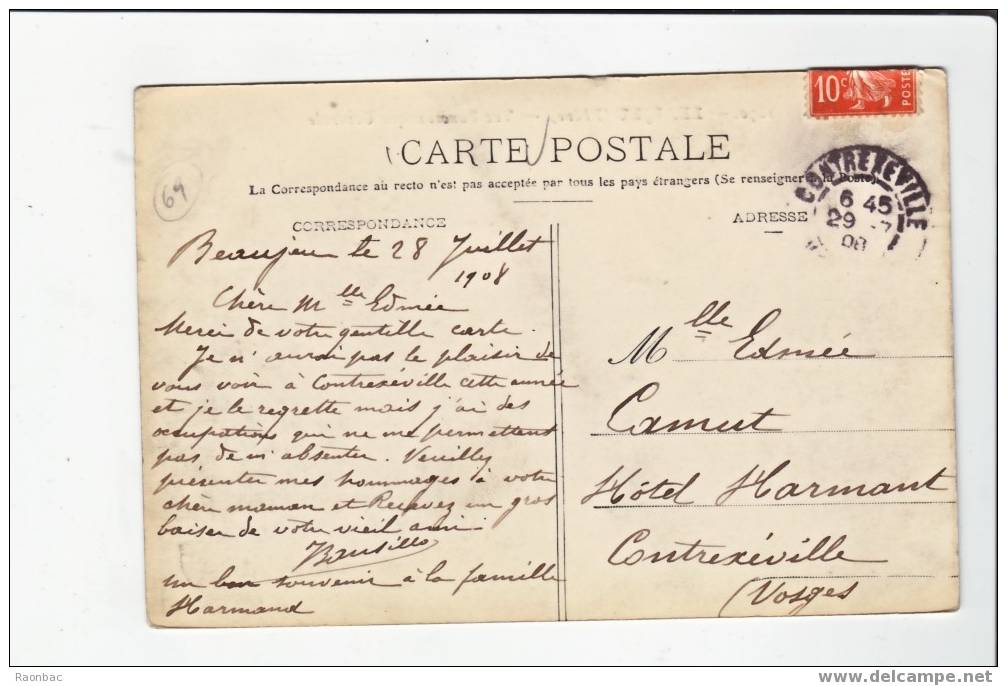 10c
POSTE
CARTE POSTALE
La Correspondance au recto n'est pas acceptée par tous les pays étrangers (Se renseigner à la Poste)
CORRESPONDANCE
ADRESSE
CONTREXEVILLE
6 45
29 -7
08
69
Beaujeu le 28 Juillet
1908
Chère Mlle Edmée
Merci de votre gentille carte.
Je n'aurai pas le plaisir de
vous voir à Contrexéville cette année
et je le regrette mais j'ai des
occupations qui ne me permettent
pas de m'absenter. Veuillez
présenter mes hommages à votre
chère maman et Recevez un gros
baiser de votre vieil ami.
un bon souvenir à la famille
Harmand
Mlle Edmée
Camut
Hôtel Harmant
Contrexéville
(Vosges
Raonbac
delcampe.net